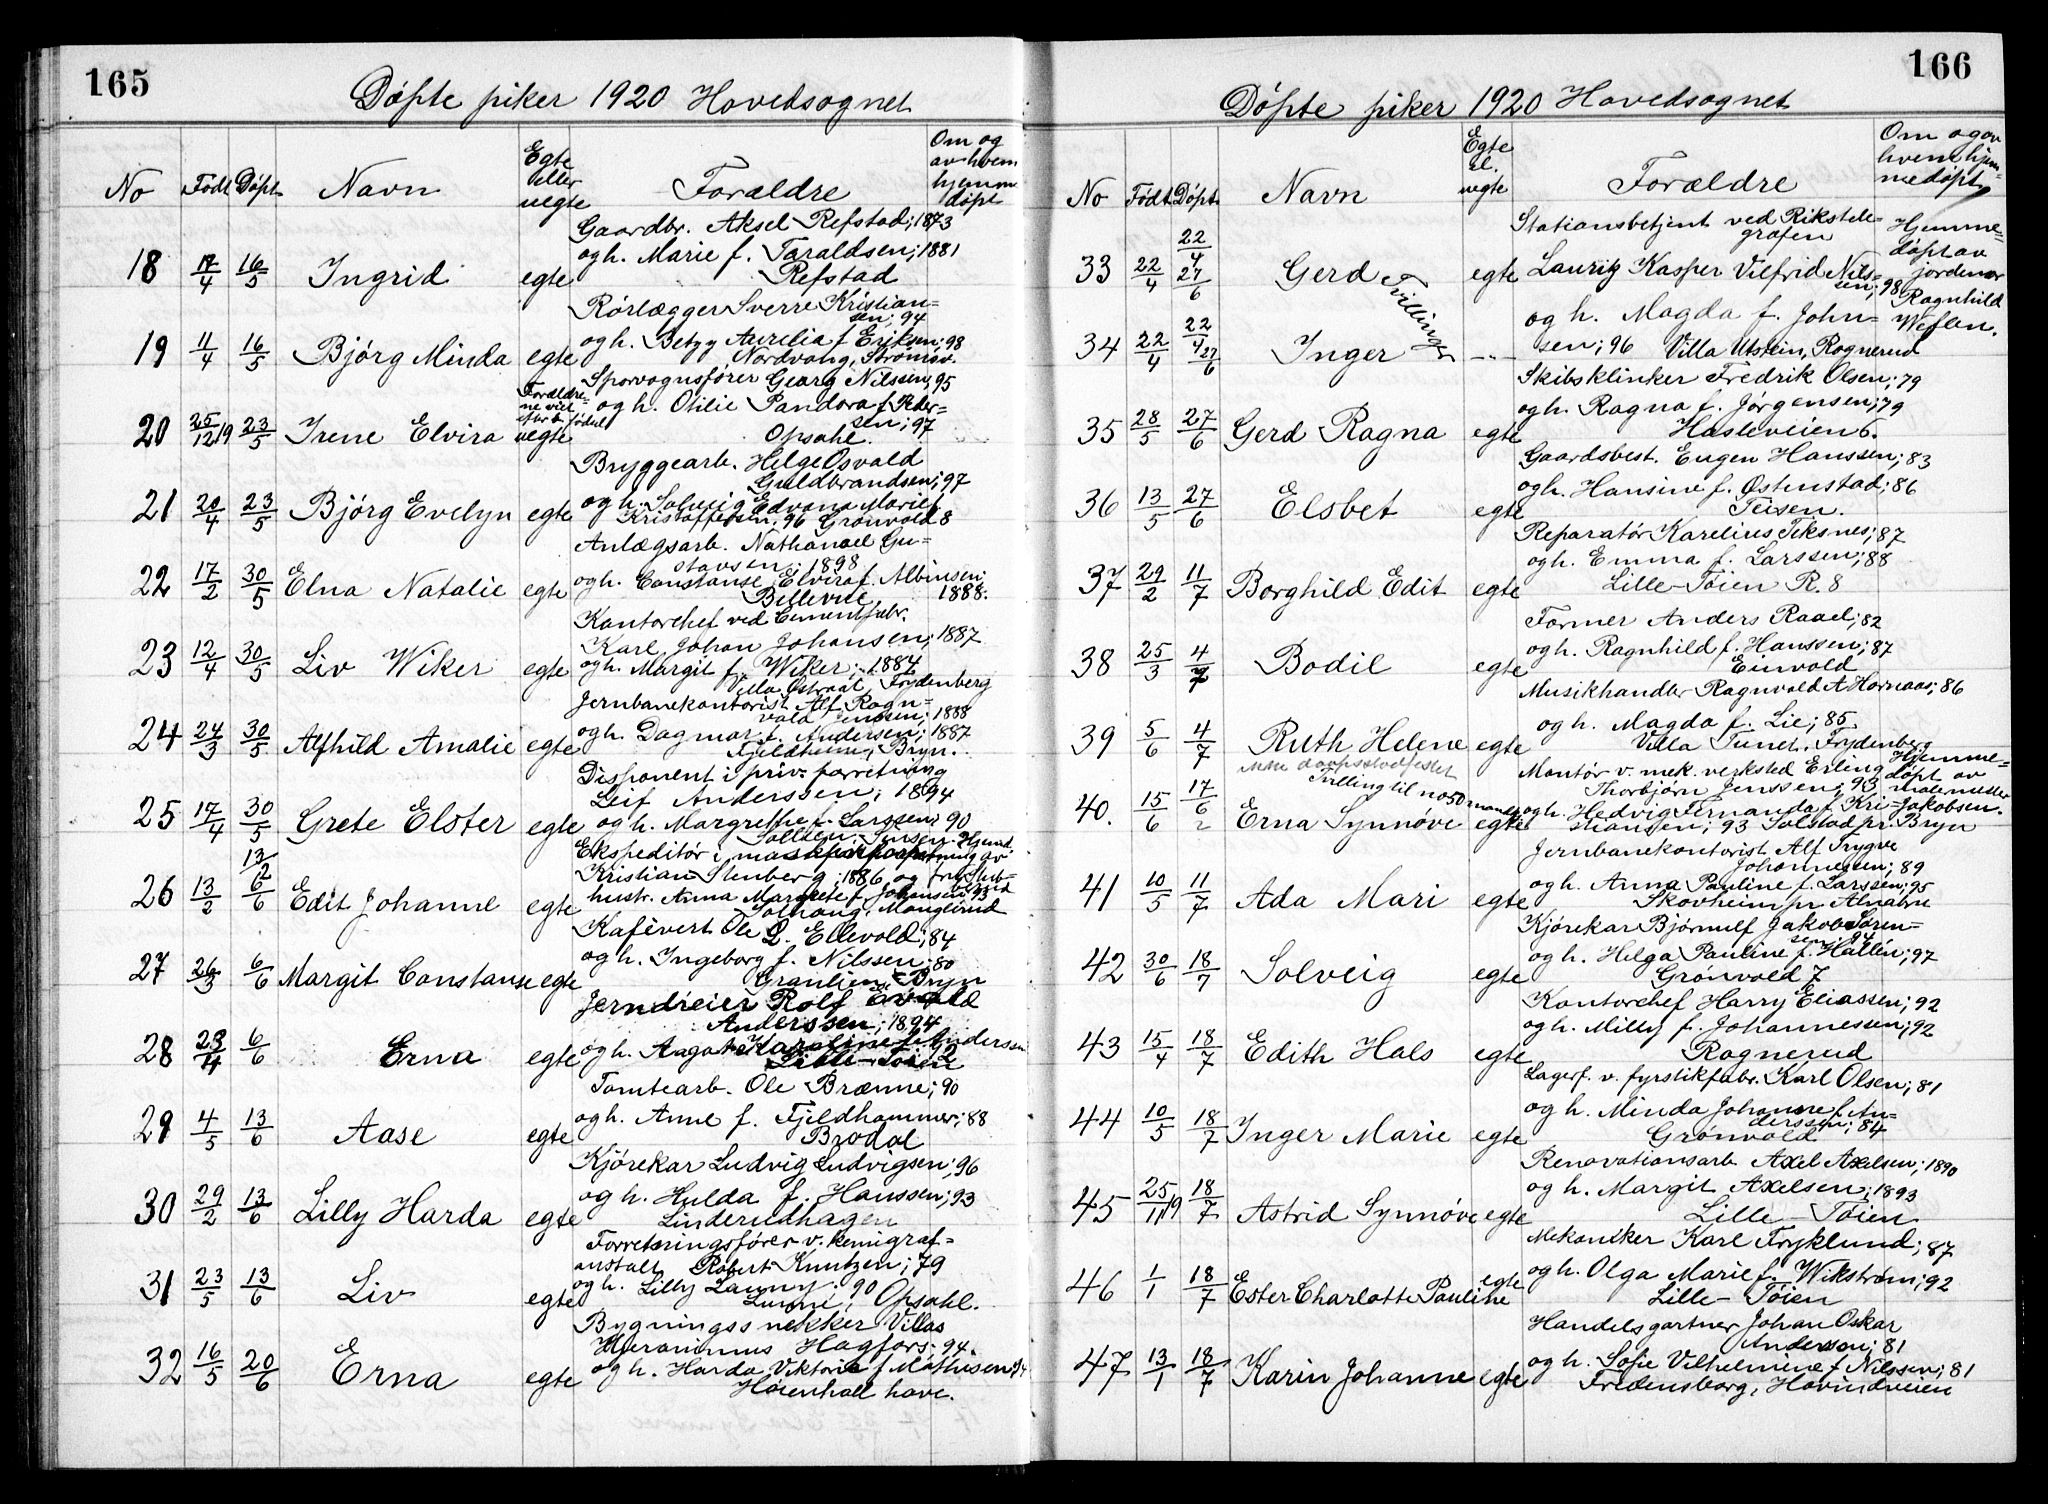 165
Døpte piker 1920 Hovedsognet
No Født Døpt Navn Egte eller uegte Forældre Om og av hvem hjemmedøpt
18 17/4 16/5 Ingrid egte
Gaardbr. Aksel Refstad; 1873
og h. Marie f. Taraldsen; 1881
Refstad
19 11/4 16/5 Bjørg Minda egte
Rørlægger Sverre Kristian=
sen; 94
og h. Betzy Aurelia f. Eriksen; 98
Nordvang, Strømsv.
20 25/12 19 23/5 Irene Elvira uegte
Forældre=
ne viet
efter b. fødsel
Sporvognsfører Georg Nilssen; 95
og h. Otilie Pandora f. Peder=
sen; 97
Opsahl.
21 20/4 23/5 Bjørg Evelyn egte
Bryggearb. Helge Osvald
Guldbrandsen; 97
og h. Solveig Edvana Marie f.
Kristoffersen, 96 Grønvold 8
22 17/2 30/5 Elna Natalie egte
Anlægsarb. Nathanael Gu=
stavsen; 1898
og h. Constanse Elvira f. Albinsen;
Bellevue 1888.
23 12/4 30/5 Liv Wiker egte
Kontorchef ved Cementfabr.
Karl Johan Johansen; 1887
og h. Margit f. Wiker; 1884
Villa Østraat, Frydenberg
24 24/3 30/5 Alfhild Amalie egte
Jernbanekontorist Alf Ragn=
vald Jenssen; 1888
og h. Dagmar f. Andersen; 1887
Fjeldheim, Bryn.
25 17/4 30/5 Grete Elster egte
Disponent i priv. forretning
Leif Anderssen; 1894
og h. Margrethe f. Larssen; 90
Sollien, Sinsen
26 13/2 13/2 6/6 Edit Johanne egte
Ekspeditør i
Kristian Stenberg; 1886 og
hustr. Anna Margrete f. Johansen; 93
Solhaug, Manglerud
27 26/3 6/6 Margit Constanse egte
Kafévert Ole L. Ellevold; 84
og h. Ingeborg f. Nilssen; 80
Granlien, Bryn
28 23/4 6/6 Erna egte
Jerndreier Rolf Evald
Anderssen; 1894
og h. Aagot Karoline f. Anderssen
Lille-Tøien 2
29 4/5 13/6 Aase egte
Tomtearb. Ole Brænne; 90
og h. Anne f. Fjeldhammer; 88
Brodal
30 29/2 13/6 Lilly Harda egte
Kjørekar Ludvig Ludvigsen; 96
og h. Hulda f. Hanssen; 93
Linderudhagen
31 23/5 13/6 Liv egte
Forretningsfører v. kemigraf=
anstalt Robert Knutzen; 79
og h. Lilly Launy; 90
Opsahl.
32 16/5 20/6 Erna egte
Bygningssnekker Villas
Hieronimus Hagfors; 94.
og h. Harda Viktoria f. Mathisen
Hasenhall have.
166
Døpte piker 1920 Hovedsognet
No Født Døpt Navn Egte el. uegte Forældre Om og av hvem hjemmedøpt
33 22/4 22/4 27/6 Gerd egte
Tvillinger
Stationsbetjent ved Rikstele=
grafen
Lauritz Kasper Vilfrid Nils=
sen; 98
Hjemme=
døpt av
jordmor
Ragnhild
Weflen.
34 22/4 22/4 27/6 Inger -"-
og h. Magda f. John=
sen; 96 Villa Utstein, Rognerud
35 28/5 27/6 Gerd Ragna egte
Skibsklinker Fredrik Olsen; 79
og h. Ragna f. Jørgensen; 79
Hasleveien 6.
36 13/5 27/6 Elsbet egte
Gaardsbest. Eugen Hanssen; 83
og h. Hansine f. Østenstad; 86
Teisen.
37 29/2 11/7 Borghild Edit egte
Reparatør Karelius Teksnes; 87
og h. Emma f. Larssen; 88
Lille-Tøien R. 8
38 25/3 4/7 Bodil egte
Former Anders Raael; 82
og h. Ragnhild f. Hanssen; 87
Einvold
39 5/6 4/7 Ruth Helene egte
Musikhandler Ragnvald A Hornaas; 86
og h. Magda f. Lie; 85
Villa Tunet, Frydenberg
40. 15/6 17/6 Erna Synnøve egte
Tvilling til no 50
Montør v. mek. verksted Erling
Thorbjørn Jenssen; 93
og h. Hedvig Fernanda f. Kri=
stiansen; 93 Solstad pr. Bryn
Hjemme=
døpt av
malermester
Jakobsen.
41 10/5 11/7 Ada Mari egte
Jernbanekontorist Alf Trygve
Johannessen; 89
og h. Anna Pauline f. Larssen; 95
Skovheim pr Alnabru
42 30/6 18/7 Solveig egte
Kjørekar Bjørnulf Jakob Søren=
sen; 94
og h. Helga Pauline f. Hallén; 97
Grønvold 7
43 15/4 18/7 Edith Hals egte
Kontorchef Harry Eliassen; 92
og h. Milly f. Johannessen; 92
Rognerud
44 10/5 18/7 Inger Marie egte
Lagerf. v. fyrstikfabr. Karl Olsen; 81
og h. Minda Johanne f. An=
derssen; 84
Grønvold
45 25/11 19 18/7 Astrid Synnøve egte
Renovationsarb. Axel Axelsen; 1890
og h. Margit Axelsen; 1893
Lille-Tøien
46 1/1 18/7 Ester Charlotte Pauline egte
Mekaniker Karl Fryklund; 87
og h. Olga Marie f. Wikstrøm; 92
Lille-Tøien
47 13/1 18/7 Karin Johanne egte
Handelsgartner Johan Oskar
Andersson; 81
og h. Sofie Vilhelmine f. Nilssen; 81
Fredensborg, Hovindveien